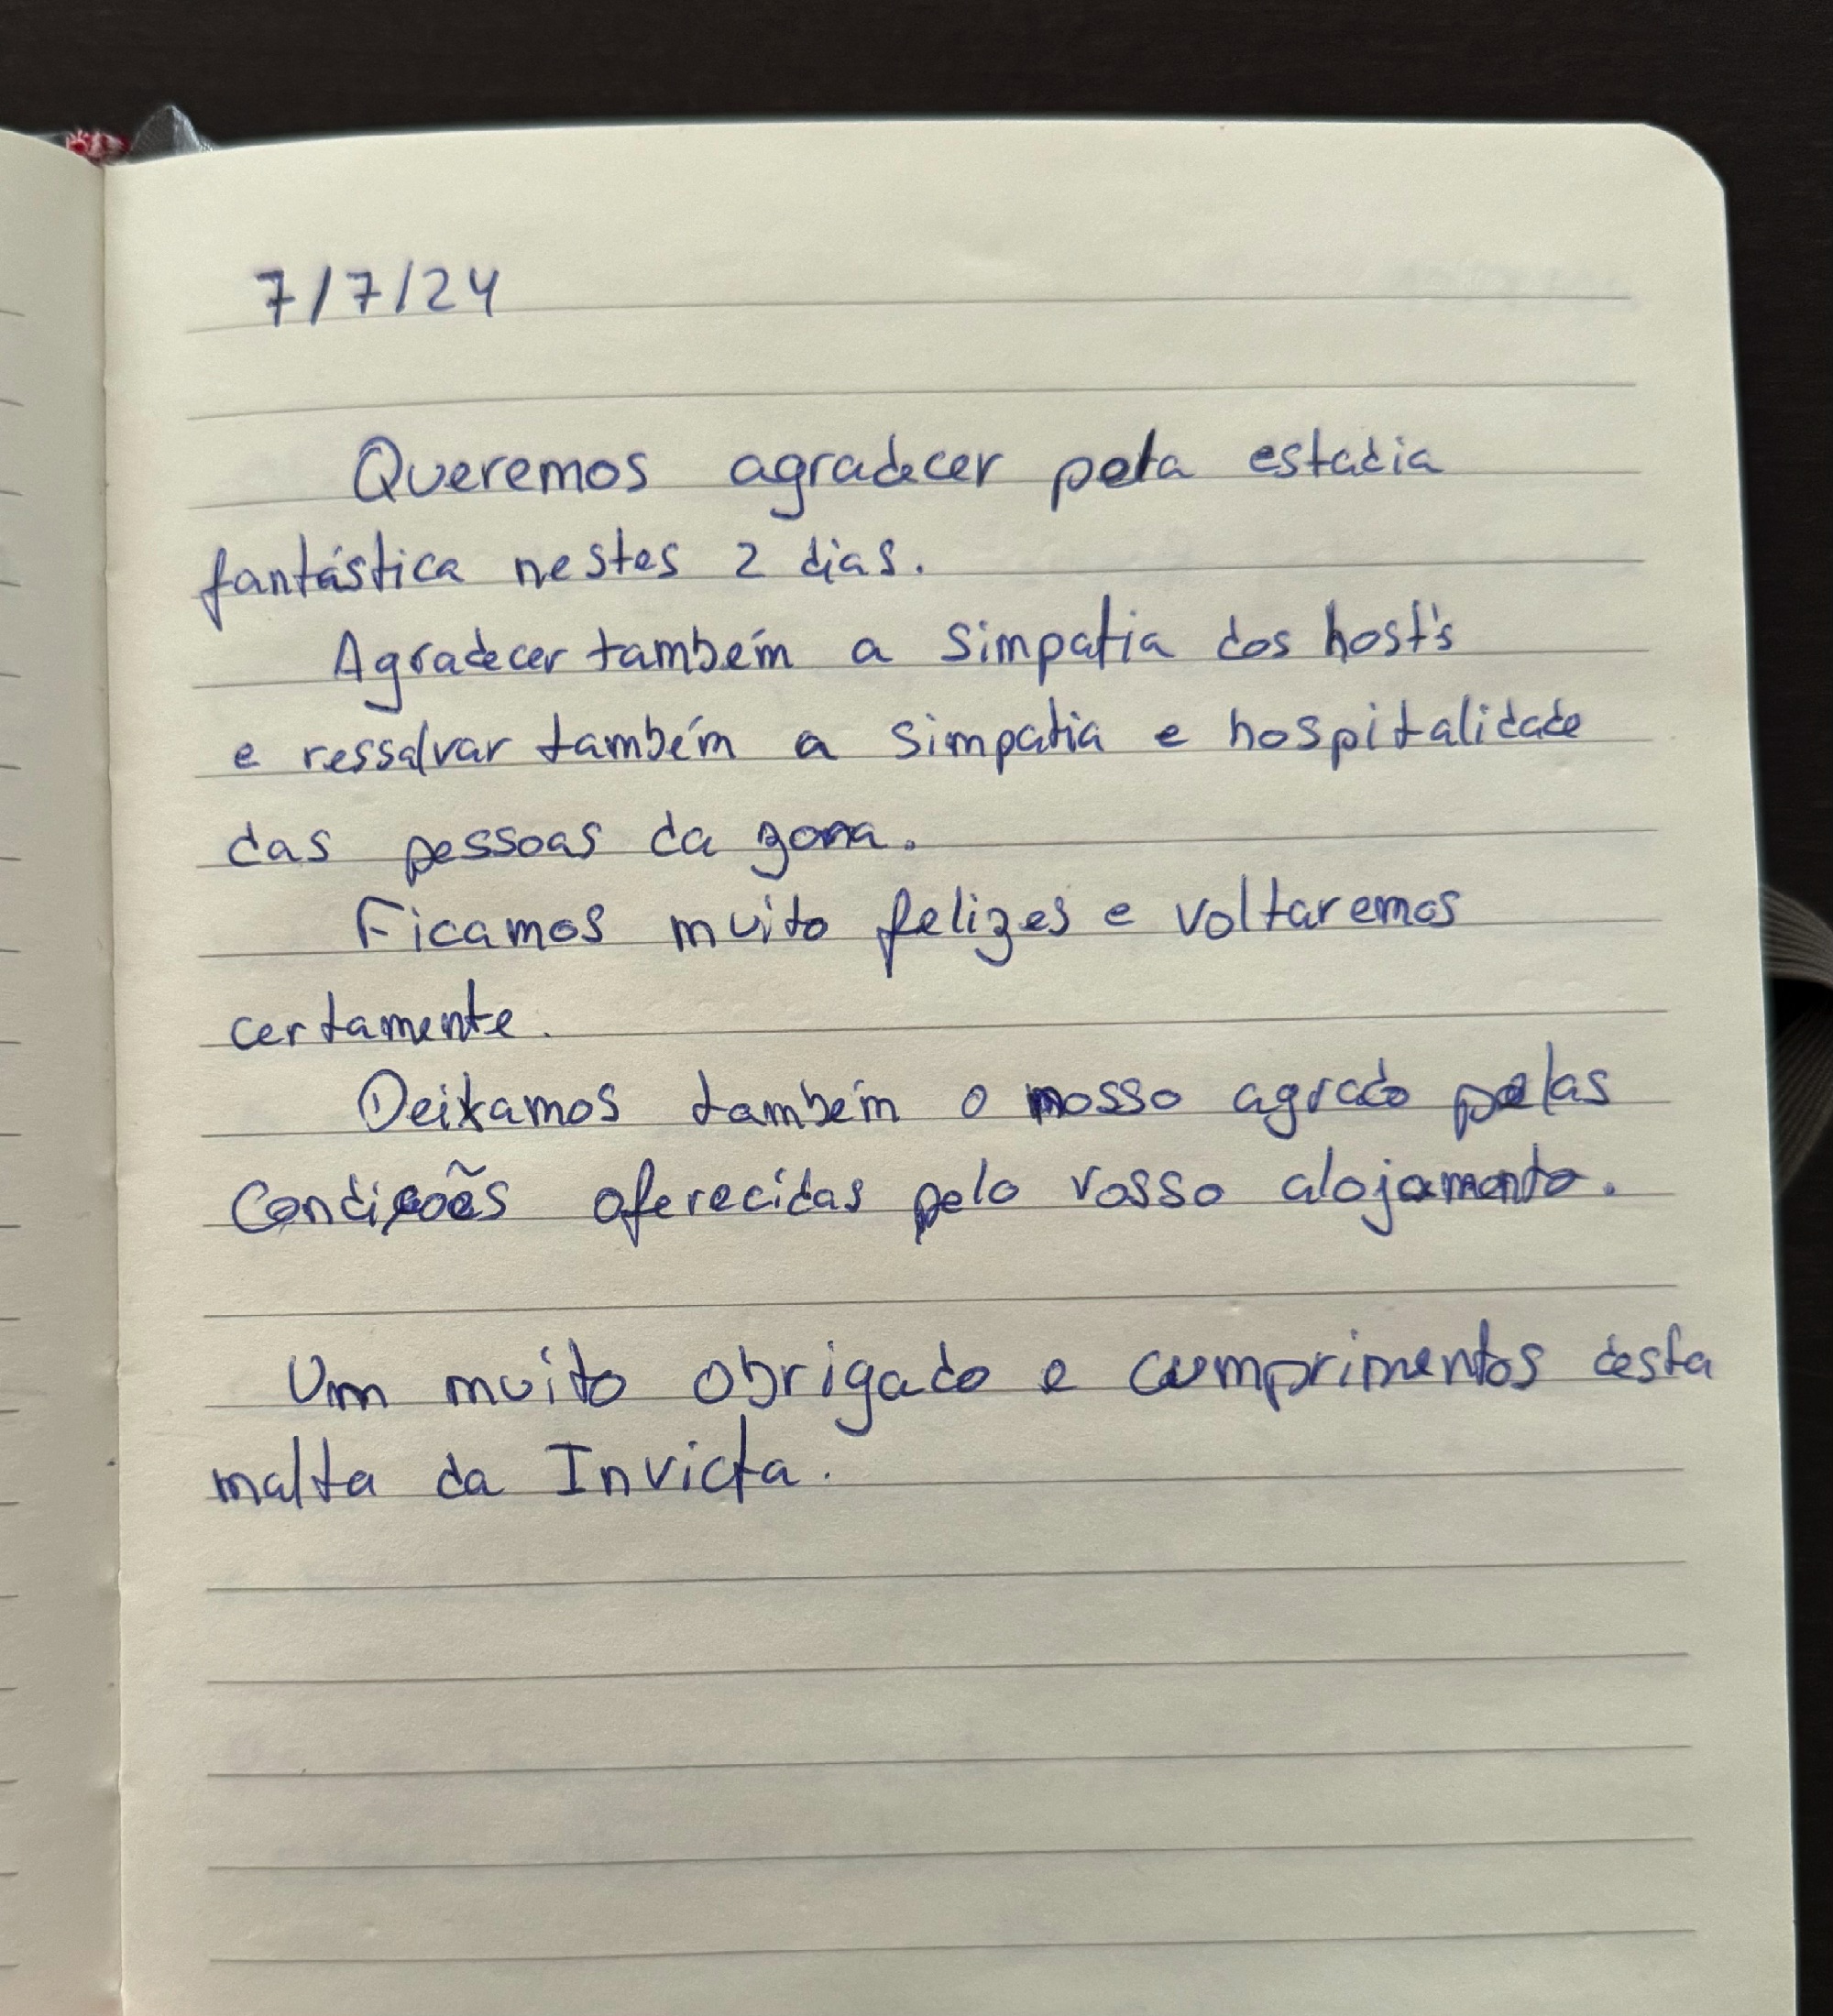 7/7/24
Queremos agradecer pela estadia
fantástica nestes 2 dias.
Agradecer também a simpatia dos host's
e ressalvar também a simpatia e hospitalidade
das pessoas da zona.
Ficamos muito felizes e voltaremos
certamente.
Deixamos também o nosso agrado pelas
condições oferecidas pelo vosso alojamento.
Um muito obrigado e cumprimentos desta
malta da Invicta.